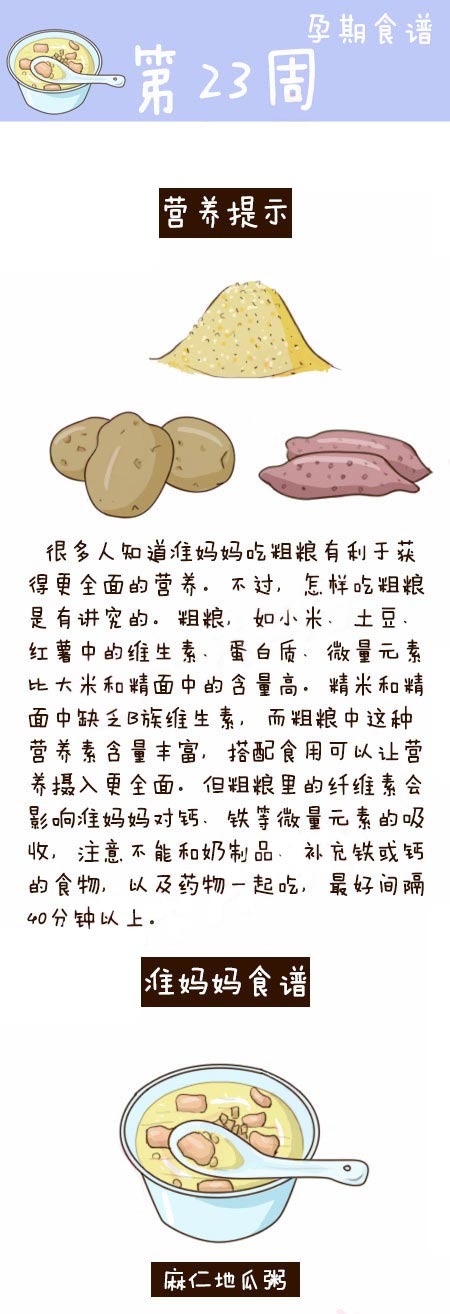 孕期食谱
第23周
营养提示
很多人知道准妈妈吃粗粮有利于获
得更全面的营养。不过，怎样吃粗粮
是有讲究的。粗粮，如小米、土豆、
红薯中的维生素、蛋白质、微量元素
比大米和精面中的含量高。精米和精
面中缺乏B族维生素，而粗粮中这种
营养素含量丰富，搭配食用可以让营
养摄入更全面。但粗粮里的纤维素会
影响准妈妈对钙、铁等微量元素的吸
收，注意不能和奶制品、补充铁或钙
的食物，以及药物一起吃，最好间隔
40分钟以上。
准妈妈食谱
麻仁地瓜粥